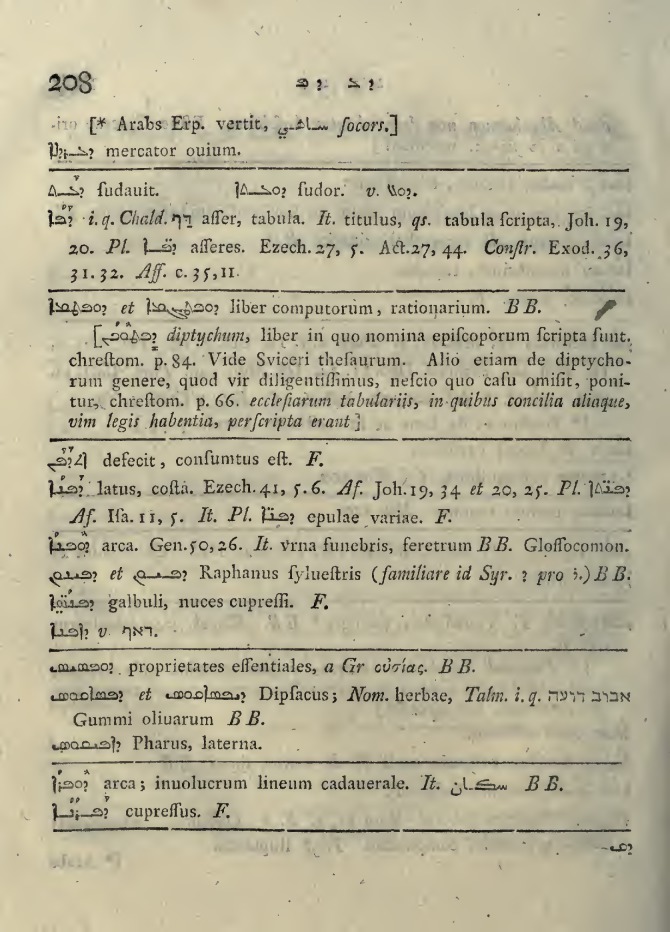 208 ܕܥ ܕܦ
[* Arabs Erp. vertit, ſocors.]
mercator ouium.
ܕܥܬ ſudauit. ܕܘܥܬܐ ſudor. v. ܕܘܥ.
ܕܦܐ i. q. Chald. דף aſſer, tabula. It. titulus, qs. tabula ſcripta, Joh. 19,
20. Pl. ܕܦ̈ܐ aſſeres. Ezech. 27, 5. Act. 27, 44. Conſtr. Exod. 36,
31. 32. Aff. c. 35, 11.
et liber computorum, rationarium. B B.
[ diptychum, liber in quo nomina epiſcoporum ſcripta ſunt.
chreſtom. p. 84. Vide Sviceri theſaurum. Alio etiam de diptycho-
rum genere, quod vir diligentiſſimus, neſcio quo caſu omiſit, poni-
tur, chreſtom. p. 66. eccleſiarum tabulariis, in quibus concilia aliaque,
vim legis habentia, perſcripta erant]
defecit, conſumtus eſt. F.
ܕܦܢܐ latus, coſta. Ezech. 41, 5. 6. Af. Joh. 19, 34 et 20, 25. Pl. ܕܦܢ̈ܬܐ
Af. Iſa. 11, 5. It. Pl. ܕܦܢ̈ܐ epulae variae. F.
ܕܘܦܢܐ arca. Gen. 50, 26. It. Vrna funebris, feretrum B B. Gloſſocomon.
et Raphanus ſylueſtris (familiare id Syr. ܕ pro ܪ.) B B.
galbuli, nuces cupreſſi. F.
v. דאף.
proprietates eſſentiales, a Gr οὐσίας. B B.
et Dipſacus; Nom. herbae, Talm. i. q. אבוב רועה
Gummi oliuarum B B.
Pharus, laterna.
arca; inuolucrum lineum cadauerale. It. B B.
cupreſſus. F.